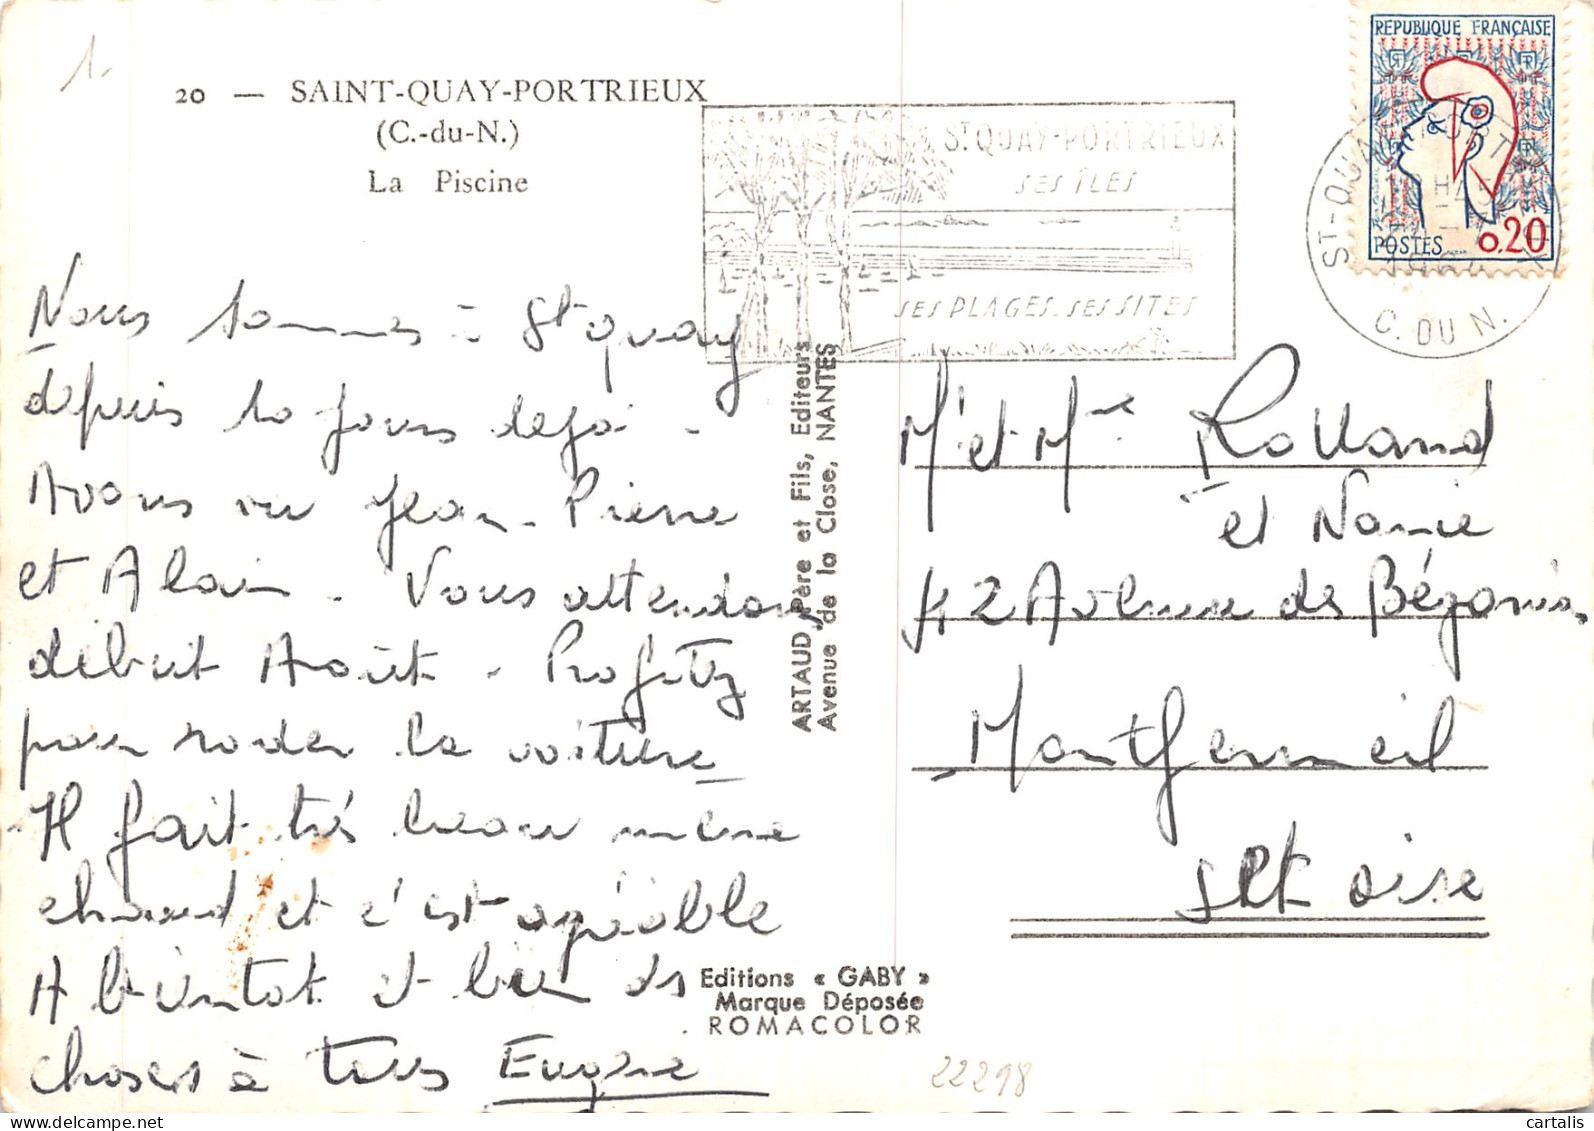 1.
20 — SAINT-QUAY-PORTRIEUX
(C.-du-N.)
La Piscine
ST QUAY-PORTRIEUX
SES ÎLES
SES PLAGES. SES SITES
REPUBLIQUE FRANÇAISE
POSTES 0.20
ST-QUAY-PORTRIEUX
1964
C. DU N.
Nous sommes à St quay
depuis 10 jours deja -
Avons vu Jean-Pierre
et Alain - Vous attendons
début Août - Profitez
pour roder la voiture
Il fait très beau même
chaud et c'est agréable
A bientot et bien ds
choses à tous Eugène
ARTAUD, Père et Fils, Editeurs
Avenue de la Close, NANTES
Mr et Mme Rolland
et Nanie
42 Avenue des Bégonias
Montfermeil
S et oise
Editions « GABY »
Marque Déposée
ROMACOLOR
22298
cartalis